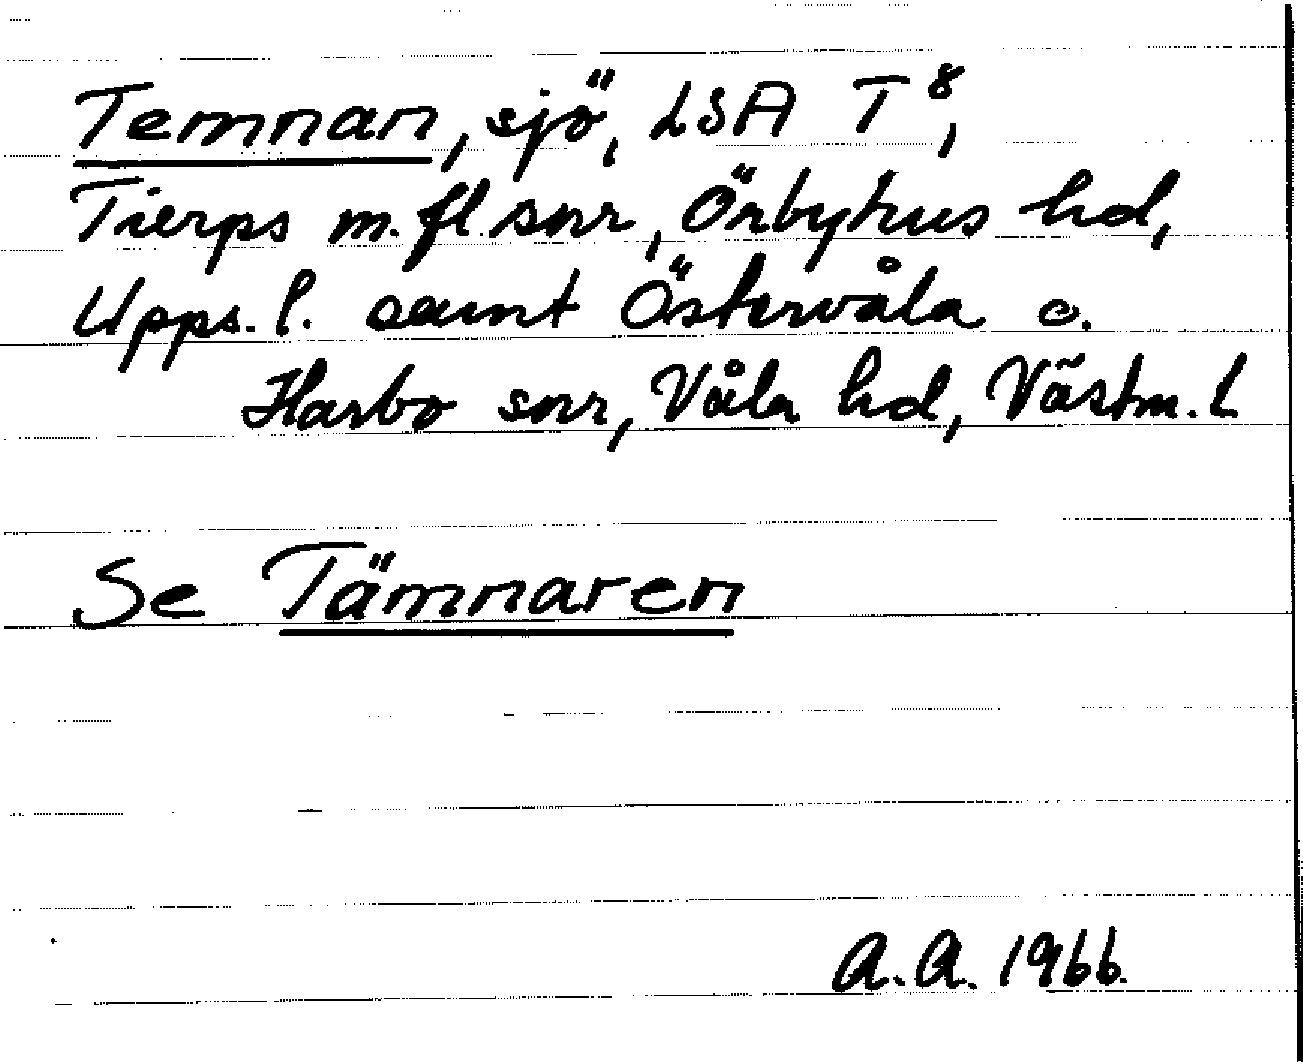 Temnan, sjö, LSA T⁸,
Tierps m.fl. snr, Örbyhus hd,
Upps. l. samt Östervåla o.
Harbo snr, Våla hd, Västm. l.
Se Tämnaren
A.A. 1966.